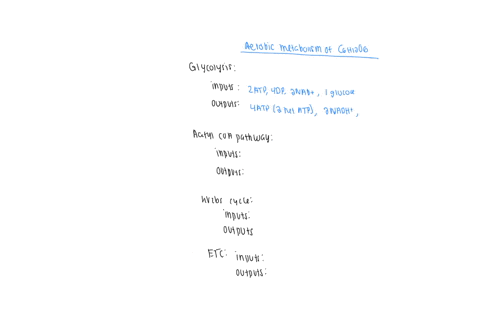 Aerobic metabolism of C6H12O6
Glycolysis:
inputs: 2ATP, 4ADP, 2NAD+, 1 glucose
outputs: 4ATP (2 net ATP), 2NADH+,
Acetyl coA pathway:
inputs:
outputs:
Krebs cycle:
inputs:
outputs
ETC: inputs:
outputs: